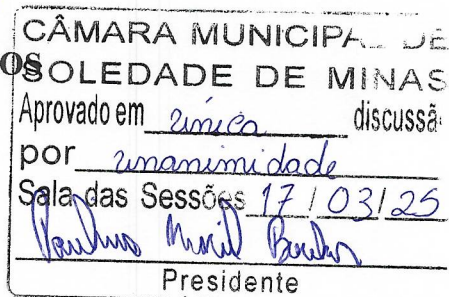 CÂMARA MUNICIPAL DE
OS
SOLEDADE DE MINAS
Aprovado em única discussã
por unanimidade
Sala das Sessões 17 / 03 / 25
Presidente